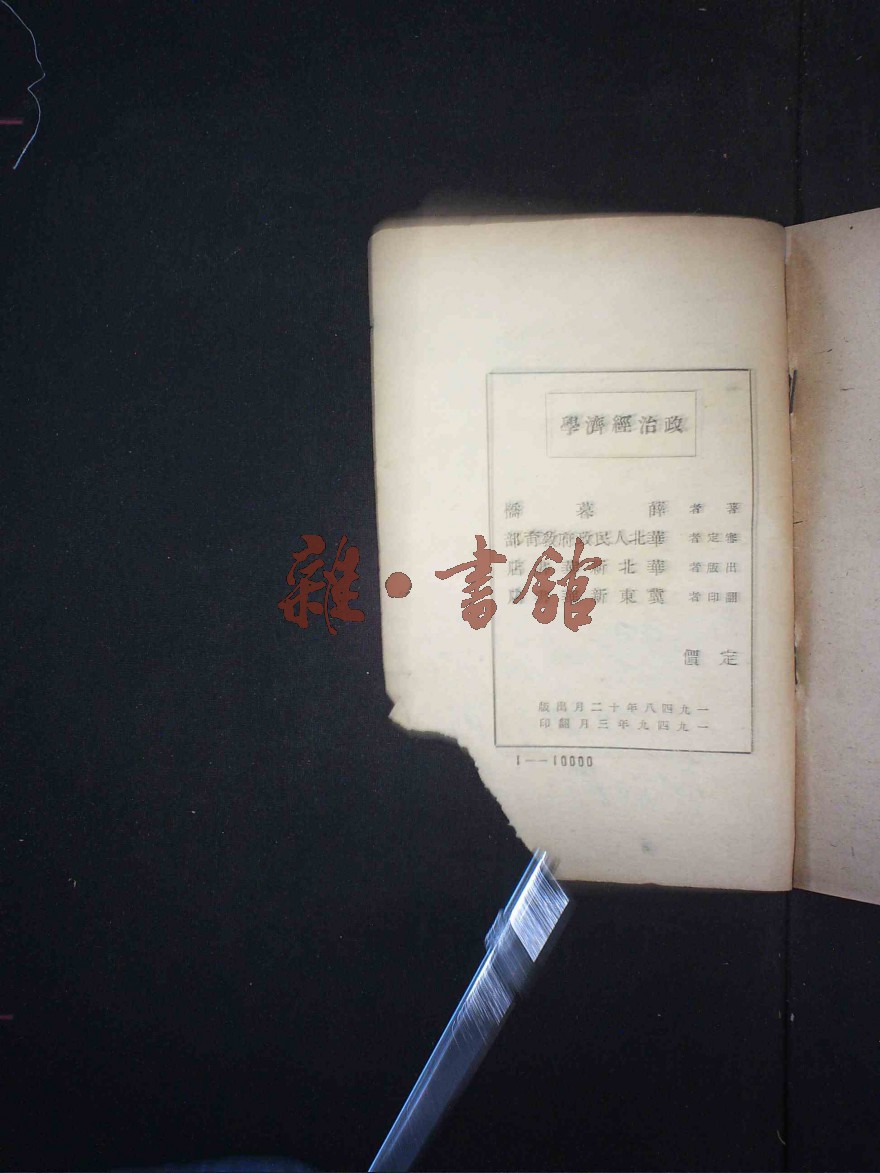 政治經濟學
著者 薛暮橋
審定者 華北人民政府教育部
出版者 華北新華書店
翻印者 冀東新華書店
定價
一九四八年十二月出版
一九四九年三月翻印
1——10000
雜·書館